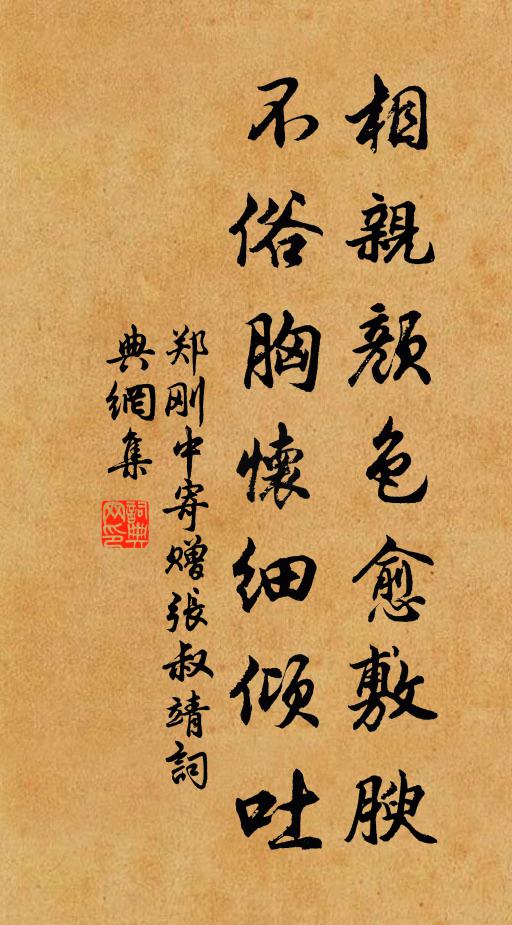 相親顏色愈敷腴
不俗胸懷細傾吐
郑刚中寄赠張叔靖詞
典網集
詞典網印